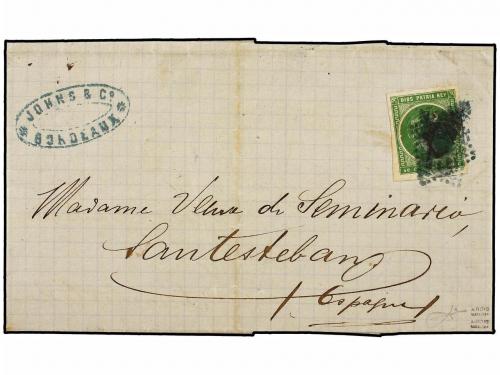 JOHNS & Co
BORDEAUX
DIOS PATRIA REY
Madame Veuve de Seminario,
Santesteban
Espagne